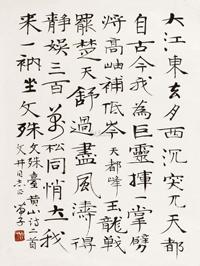 大江東去夕西沉突兀天都
自古今我為巨靈揮一掌劈
將高岫補低岑 天都峰 玉龍戰
罷楚天舒過盡風濤得
靜娛三百萬松同悄大我
來一衲坐文殊
文殊臺 黃山詩一首